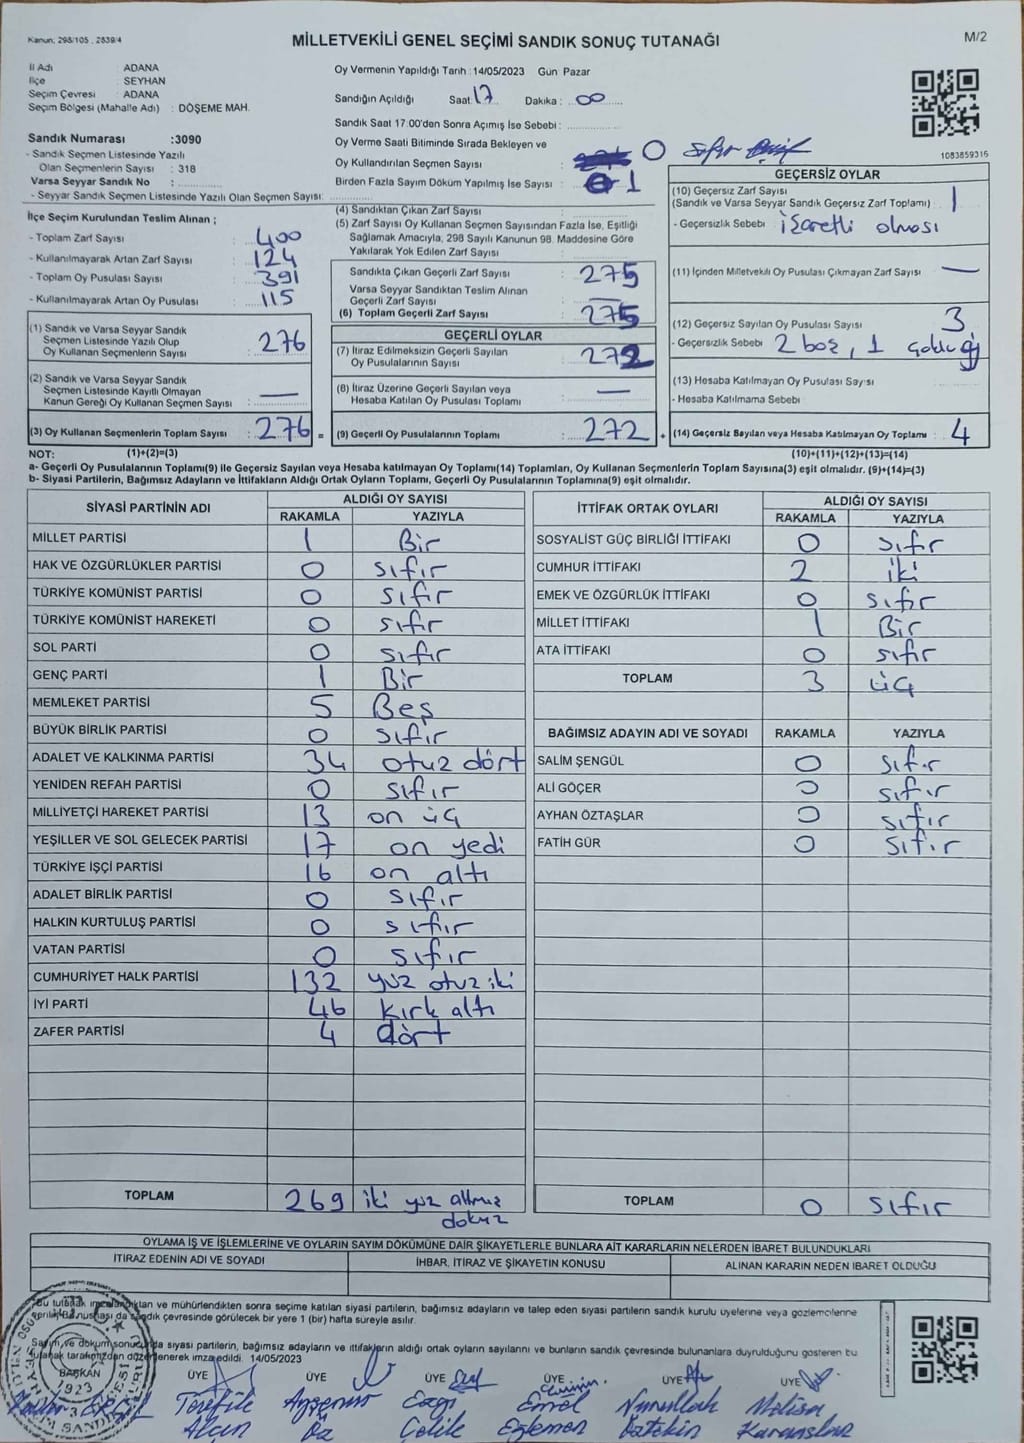 Kanun; 298/105 , 2839/4
MİLLETVEKİLİ GENEL SEÇİMİ SANDIK SONUÇ TUTANAĞI
M/2
İl Adı : ADANA
İlçe : SEYHAN
Seçim Çevresi : ADANA
Seçim Bölgesi (Mahalle Adı) : DÖŞEME MAH.
Oy Vermenin Yapıldığı Tarih : 14/05/2023 Gün Pazar
Sandığın Açıldığı Saat: 17 Dakika : 00
Sandık Saat 17:00'den Sonra Açımış İse Sebebi :
Oy Verme Saati Bitiminde Sırada Bekleyen ve
Oy Kullandırılan Seçmen Sayısı : 0 sıfır
Birden Fazla Sayım Döküm Yapılmış İse Sayısı : 1
1083859316
Sandık Numarası :3090
- Sandık Seçmen Listesinde Yazılı
Olan Seçmenlerin Sayısı : 318
Varsa Seyyar Sandık No :
- Seyyar Sandık Seçmen Listesinde Yazılı Olan Seçmen Sayısı:
İlçe Seçim Kurulundan Teslim Alınan ;
- Toplam Zarf Sayısı : 400
- Kullanılmayarak Artan Zarf Sayısı : 124
- Toplam Oy Pusulası Sayısı : 391
- Kullanılmayarak Artan Oy Pusulası : 115
(1) Sandık ve Varsa Seyyar Sandık
Seçmen Listesinde Yazılı Olup
Oy Kullanan Seçmenlerin Sayısı : 276
(2) Sandık ve Varsa Seyyar Sandık
Seçmen Listesinde Kayıtlı Olmayan
Kanun Gereği Oy Kullanan Seçmen Sayısı : —
(3) Oy Kullanan Seçmenlerin Toplam Sayısı : 276 =
(4) Sandıktan Çıkan Zarf Sayısı :
(5) Zarf Sayısı Oy Kullanan Seçmen Sayısından Fazla İse, Eşitliği
Sağlamak Amacıyla, 298 Sayılı Kanunun 98. Maddesine Göre
Yakılarak Yok Edilen Zarf Sayısı :
Sandıkta Çıkan Geçerli Zarf Sayısı : 275
Varsa Seyyar Sandıktan Teslim Alınan
Geçerli Zarf Sayısı : —
(6) Toplam Geçerli Zarf Sayısı : 275
GEÇERLİ OYLAR
(7) İtiraz Edilmeksizin Geçerli Sayılan
Oy Pusulalarının Sayısı : 272
(8) İtiraz Üzerine Geçerli Sayılan veya
Hesaba Katılan Oy Pusulası Toplamı : —
(9) Geçerli Oy Pusulalarının Toplamı : 272 +
GEÇERSİZ OYLAR
(10) Geçersiz Zarf Sayısı
(Sandık ve Varsa Seyyar Sandık Geçersiz Zarf Toplamı) : 1
- Geçersizlik Sebebi : işaretli olması
(11) İçinden Milletvekili Oy Pusulası Çıkmayan Zarf Sayısı : —
(12) Geçersiz Sayılan Oy Pusulası Sayısı : 3
- Geçersizlik Sebebi : 2 boş, 1
(13) Hesaba Katılmayan Oy Pusulası Sayısı :
- Hesaba Katılmama Sebebi :
(14) Geçersiz Sayılan veya Hesaba Katılmayan Oy Toplamı : 4
NOT: (1)+(2)=(3) (10)+(11)+(12)+(13)=(14)
a- Geçerli Oy Pusulalarının Toplamı(9) ile Geçersiz Sayılan veya Hesaba katılmayan Oy Toplamı(14) Toplamları, Oy Kullanan Seçmenlerin Toplam Sayısına(3) eşit olmalıdır. (9)+(14)=(3)
b- Siyasi Partilerin, Bağımsız Adayların ve İttifakların Aldığı Ortak Oyların Toplamı, Geçerli Oy Pusulalarının Toplamına(9) eşit olmalıdır.
SİYASİ PARTİNİN ADI ALDIĞI OY SAYISI
RAKAMLA YAZIYLA
MİLLET PARTİSİ 1 Bir
HAK VE ÖZGÜRLÜKLER PARTİSİ 0 sıfır
TÜRKİYE KOMÜNİST PARTİSİ 0 sıfır
TÜRKİYE KOMÜNİST HAREKETİ 0 sıfır
SOL PARTİ 0 sıfır
GENÇ PARTİ 1 Bir
MEMLEKET PARTİSİ 5 Beş
BÜYÜK BİRLİK PARTİSİ 0 sıfır
ADALET VE KALKINMA PARTİSİ 34 otuz dört
YENİDEN REFAH PARTİSİ 0 sıfır
MİLLİYETÇİ HAREKET PARTİSİ 13 on üç
YEŞİLLER VE SOL GELECEK PARTİSİ 17 on yedi
TÜRKİYE İŞÇİ PARTİSİ 16 on altı
ADALET BİRLİK PARTİSİ 0 sıfır
HALKIN KURTULUŞ PARTİSİ 0 sıfır
VATAN PARTİSİ 0 sıfır
CUMHURİYET HALK PARTİSİ 132 yüz otuz iki
İYİ PARTİ 46 kırk altı
ZAFER PARTİSİ 4 dört
TOPLAM 269 iki yüz altmış
dokuz
İTTİFAK ORTAK OYLARI ALDIĞI OY SAYISI
RAKAMLA YAZIYLA
SOSYALİST GÜÇ BİRLİĞİ İTTİFAKI 0 sıfır
CUMHUR İTTİFAKI 2 iki
EMEK VE ÖZGÜRLÜK İTTİFAKI 0 sıfır
MİLLET İTTİFAKI 1 Bir
ATA İTTİFAKI 0 sıfır
TOPLAM 3 üç
BAĞIMSIZ ADAYIN ADI VE SOYADI RAKAMLA YAZIYLA
SALİM ŞENGÜL 0 sıfır
ALİ GÖÇER 0 sıfır
AYHAN ÖZTAŞLAR 0 sıfır
FATİH GÜR 0 sıfır
TOPLAM 0 sıfır
OYLAMA İŞ VE İŞLEMLERİNE VE OYLARIN SAYIM DÖKÜMÜNE DAİR ŞİKAYETLERLE BUNLARA AİT KARARLARIN NELERDEN İBARET BULUNDUKLARI
İTİRAZ EDENİN ADI VE SOYADI İHBAR, İTİRAZ VE ŞİKAYETİN KONUSU ALINAN KARARIN NEDEN İBARET OLDUĞU
Bu tutanak imzalandıktan ve mühürlendikten sonra seçime katılan siyasi partilerin, bağımsız adayların ve talep eden siyasi partilerin sandık kurulu üyelerine veya gözlemcilerine
verilir. Bir nüshası da sandık çevresinde görülecek bir yere 1 (bir) hafta süreyle asılır.
Sayım ve döküm sonucunda siyasi partilerin, bağımsız adayların ve ittifakların aldığı ortak oyların sayılarını ve bunların sandık çevresinde bulunanlara duyrulduğunu gösteren bu
tutanak tarafımızdan düzenlenerek imza edildi. 14/05/2023
BAŞKAN ÜYE ÜYE ÜYE ÜYE ÜYE ÜYE
1923
Ayşenur Ezgi Emel Nurullah Melisa
Alçın Öz Çelik Öztekin Karaaslan